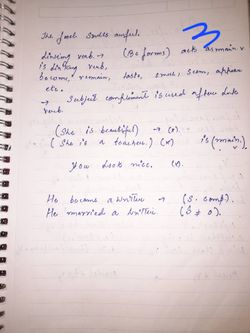 The food smells awful.
3
linking verb. → (Be forms) act as main v
is linking verb,
become, remain, taste, smell, seem, appear
etc.
→ Subject complement is used after link
verb.
(She is beautiful) → (✓).
(She is a teacher.) (✓) is (main.
v.
You look nice. (✓).
He became a writer → (S. comp).
He married a writter. (S ≠ O).